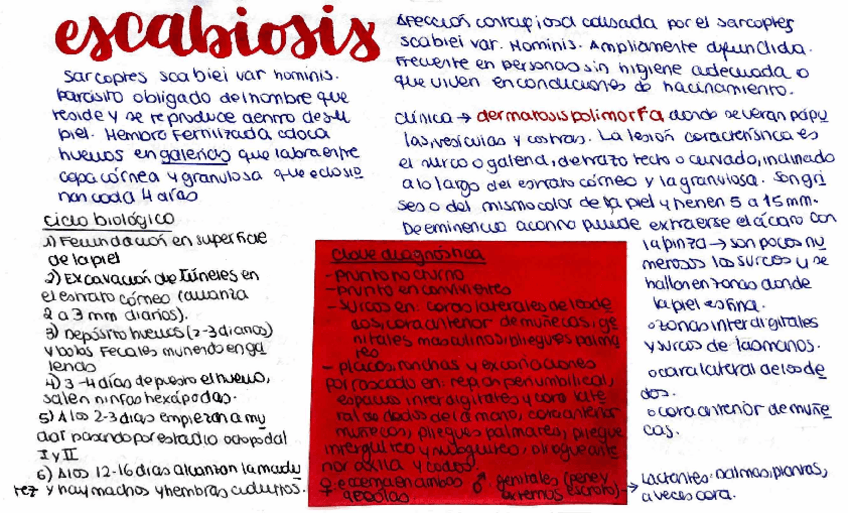 escabiosis
sarcoptes scabiei var hominis.
parásito obligado del hombre que
reside y se reproduce dentro de su
piel. Hembra Fertilizada coloca
huevos en galerías que labra entre
capa córnea y granulosa que eclosio
nan cada 4 días
Afección contagiosa causada por el sarcoptes
scabiei var. Hominis. Ampliamente difundida.
Frecuente en personas sin higiene adecuada o
que viven en condiciones de hacinamiento.
clínica → dermatosis polimorfa donde se verán pápu
las, vesículas y costras. La lesión característica es
el surco o galería, de trazo recto o curvado, inclinado
a lo largo del estrato córneo y la granulosa. Son gri
ses o del mismo color de la piel y tienen 5 a 15 mm.
De eminencia acarina puede extraerse el ácaro con
la pinza → son pocos nu
merosos los surcos y se
hallan en zonas donde
la piel es fina.
o zonas interdigitales
y surcos de las manos.
o cara lateral de los de
dos.
o cara anterior de muñe
cas.
ciclo biológico
1) Fecundación en superficie
de la piel
2) Excavación de túneles en
el estrato córneo (avanza
2 a 3 mm diarios).
3) Depósito huevos (2-3 diarios)
y bolos fecales muriendo en ga
lerías
4) 3-4 días de puesto el huevo,
salen ninfas hexápodas.
5) A los 2-3 días empiezan a mu
dar pasando por estadio octopodal
I y II
6) A los 12-16 días alcanzan la madu
rez y hay machos y hembras adultos.
clave diagnóstica
- prurito nocturno
- prurito en convivientes
- surcos en: caras laterales de los de
dos, cara anterior de muñecas, ge
nitales masculinos, pliegues palma
res
- placas, ronchas y excoriaciones
por rascado en: región periumbilical,
espacios interdigitales y cara late
ral de dedos de la mano, cara anterior
muñecas, pliegues palmares, pliegue
intergluteo y subgluteo, pliegue ante
rior axila y codos.
♀ eccema en ambas areolas
♂ genitales (pene y externos escroto)
→ Lactantes: palmas, plantas,
a veces cara.